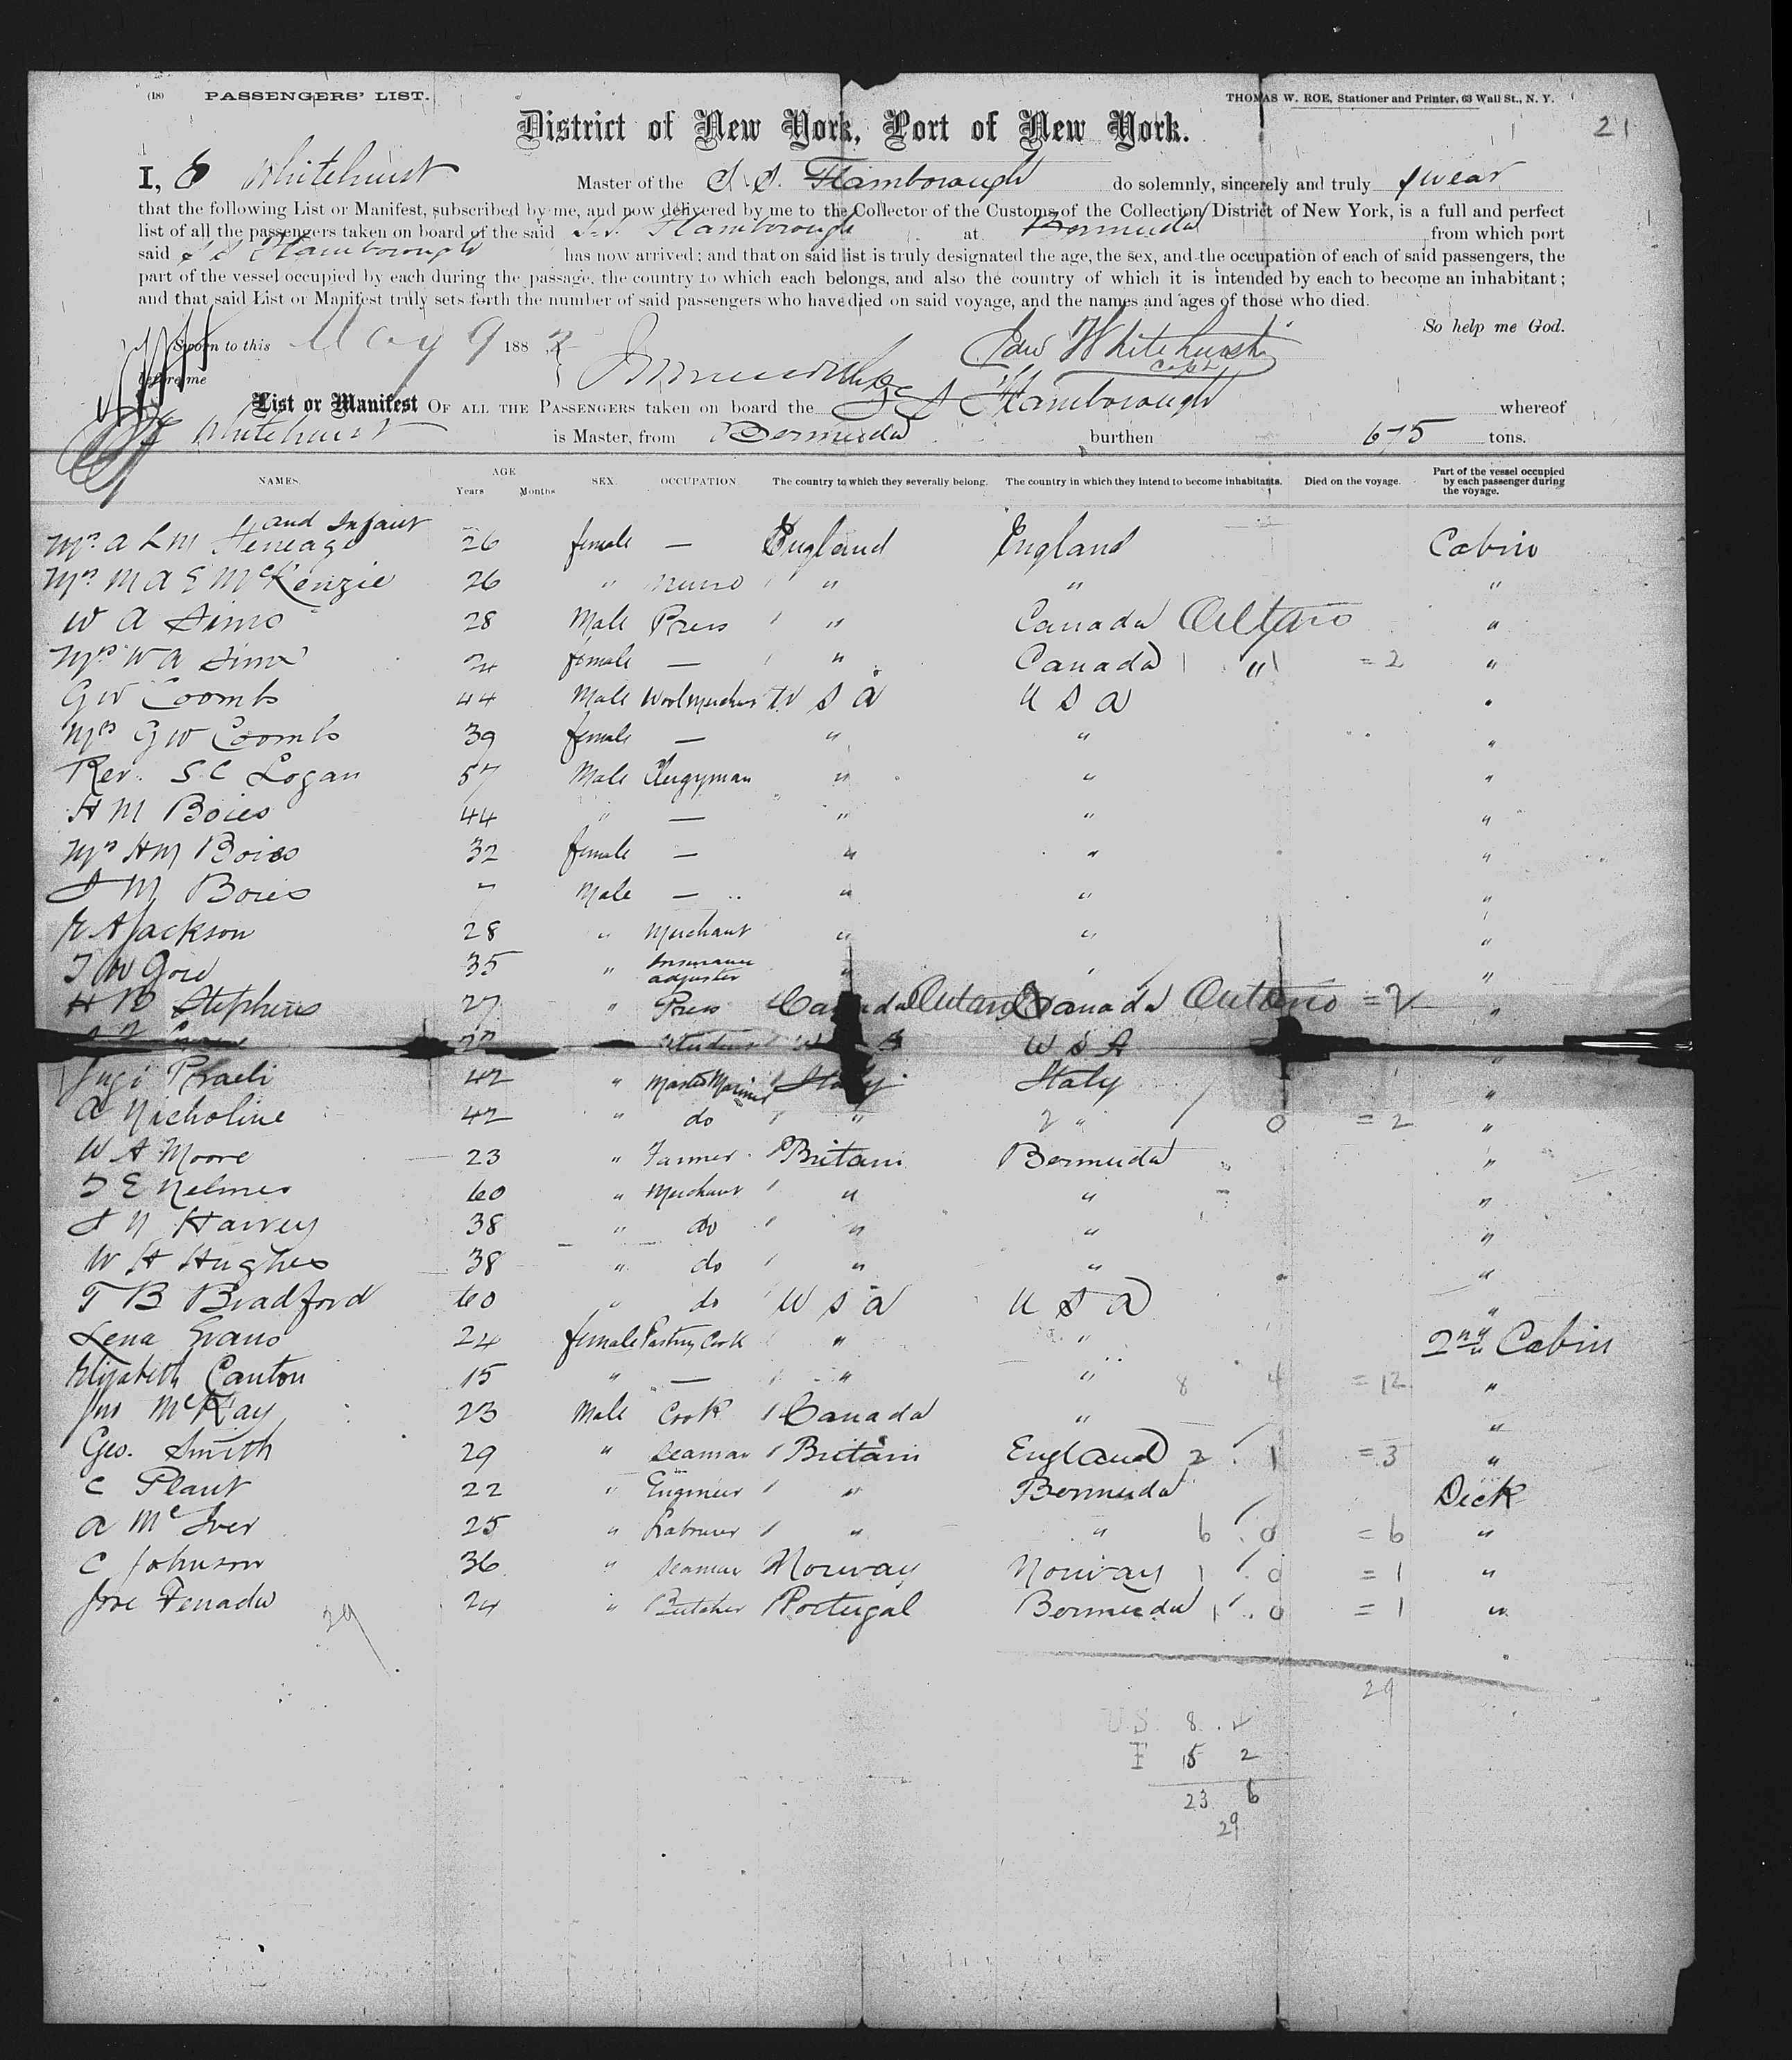 (18) PASSENGERS' LIST. THOMAS W. ROE, Stationer and Printer, 63 Wall St., N. Y.
21
District of New York, Port of New York.
I, E Whitehurst Master of the S. S. Flamborough do solemnly, sincerely and truly swear
that the following List or Manifest, subscribed by me, and now delivered by me to the Collector of the Customs of the Collection District of New York, is a full and perfect
list of all the passengers taken on board of the said S.S. Flamborough at Bermuda from which port
said S S Flamborough has now arrived; and that on said list is truly designated the age, the sex, and the occupation of each of said passengers, the
part of the vessel occupied by each during the passage, the country to which each belongs, and also the country of which it is intended by each to become an inhabitant;
and that said List or Manifest truly sets forth the number of said passengers who have died on said voyage, and the names and ages of those who died.
So help me God.
Sworn to this May 9 188 Edw Whitehurst
before me Capt
List or Manifest OF ALL THE PASSENGERS taken on board the S S Flamborough whereof
E Whitehurst is Master, from Bermuda burthen 675 tons.
NAMES. AGE Years Months SEX. OCCUPATION. The country to which they severally belong. The country in which they intend to become inhabitants. Died on the voyage. Part of the vessel occupied by each passenger during the voyage.
and Infant
Mrs A L M Heneage 26 female — England England Cabin
Mrs M A E McKenzie 26 " " " "
W A Sims 28 Male Press " Canada Ontario "
Mrs W A Sims 24 female — " Canada 1 " 1 = 2 "
G W Coombs 44 Male Wool Merchant U S A U S A "
Mrs G W Coombs 39 female — " " "
Rev. S. C Logan 57 Male Clergyman " " "
H M Boies 44 " — " " "
Mrs H M Boies 32 female — " " "
J M Boies 7 Male — " " "
E A Jackson 28 " Merchant " " "
T W Gow 35 " Insurance adjuster " " "
H B Stephens 27 " Press Canada Ontario Canada Ontario = 2 "
Student U S A "
42 " Master Mariner Italy Italy "
A Nicholine 42 " do " 2 " 0 = 2 "
W A Moore 23 " Farmer Britain Bermuda "
T E Nelmes 60 " Merchant " " "
J N Harvey 38 " do " " "
W H Hughes 38 " do " " "
T B Bradford 60 " do U S A U S A "
Lena Evans 24 female Pastry Cook " " 2nd Cabin
Elizabeth Canton 15 " — " " 8 4 = 12 "
Jno McKay 23 Male Cook Canada " "
Geo. Smith 29 " Seaman Britain England 2 1 = 3 "
C Plant 22 " Engineer " Bermuda Deck
A McIver 25 " Labourer " " 6 0 = 6 "
C Johnson 36 " Seaman Norway Norway 1 0 = 1 "
Jose 24 " Butcher Portugal Bermuda 1 0 = 1 "
29
29
U.S. 8 4
F 15 2
23 6
29